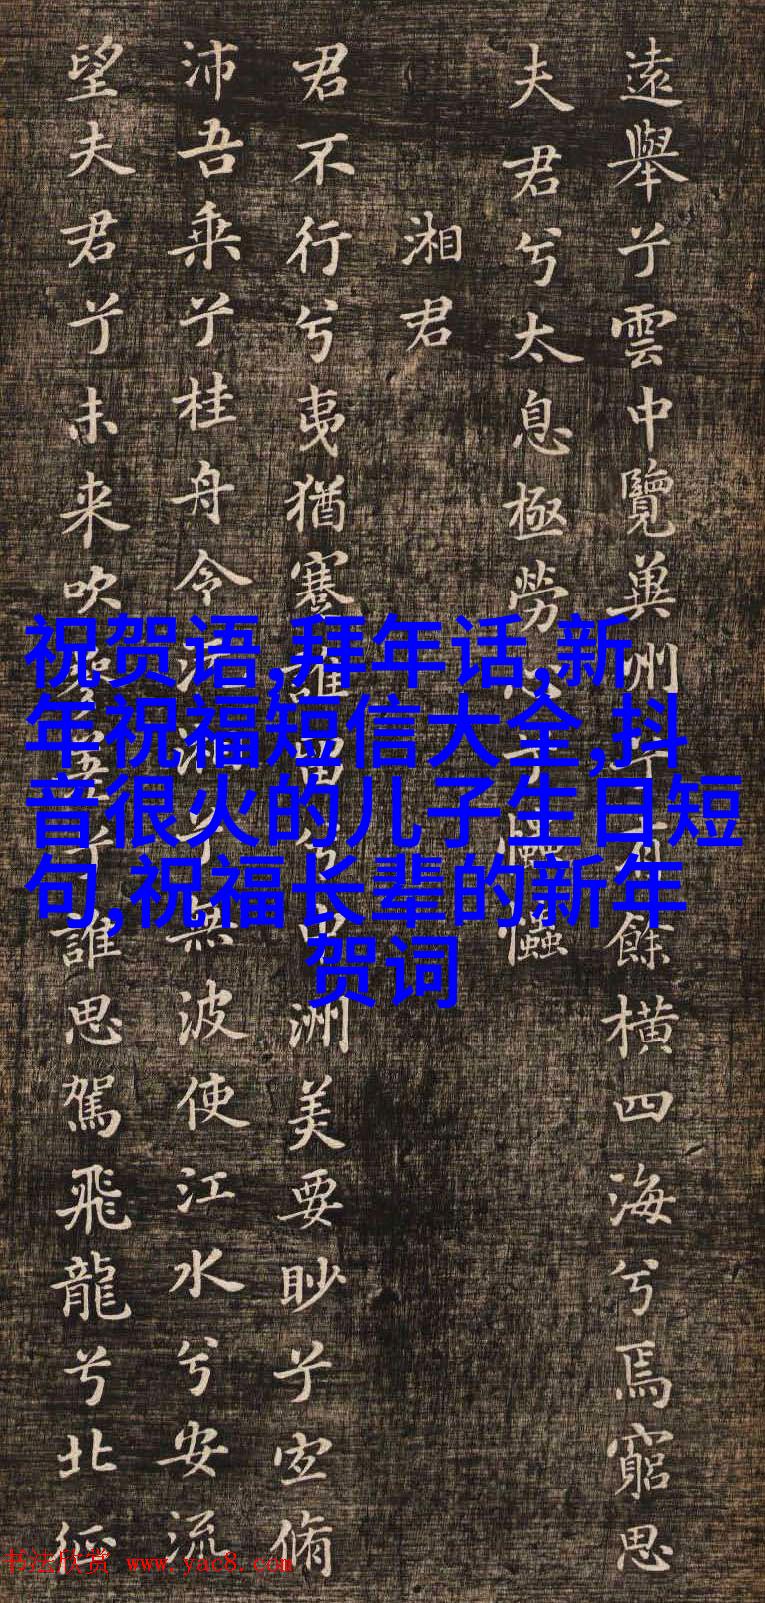 遠舉兮雲中覽兾洲兮有餘橫四海兮焉窮思
夫君兮太息極勞心兮
湘君
君不行兮夷猶蹇誰留兮中洲美要眇兮宜脩
沛吾乘兮桂舟令沅湘兮無波使江水兮安流
望夫君兮未来吹參差兮誰思駕飛龍兮北征
祝贺语,拜年话,新
年祝福短信大全,抖
音很火的儿子生日短
句,祝福长辈的新年
贺词
书法欣赏 www.yac8.com